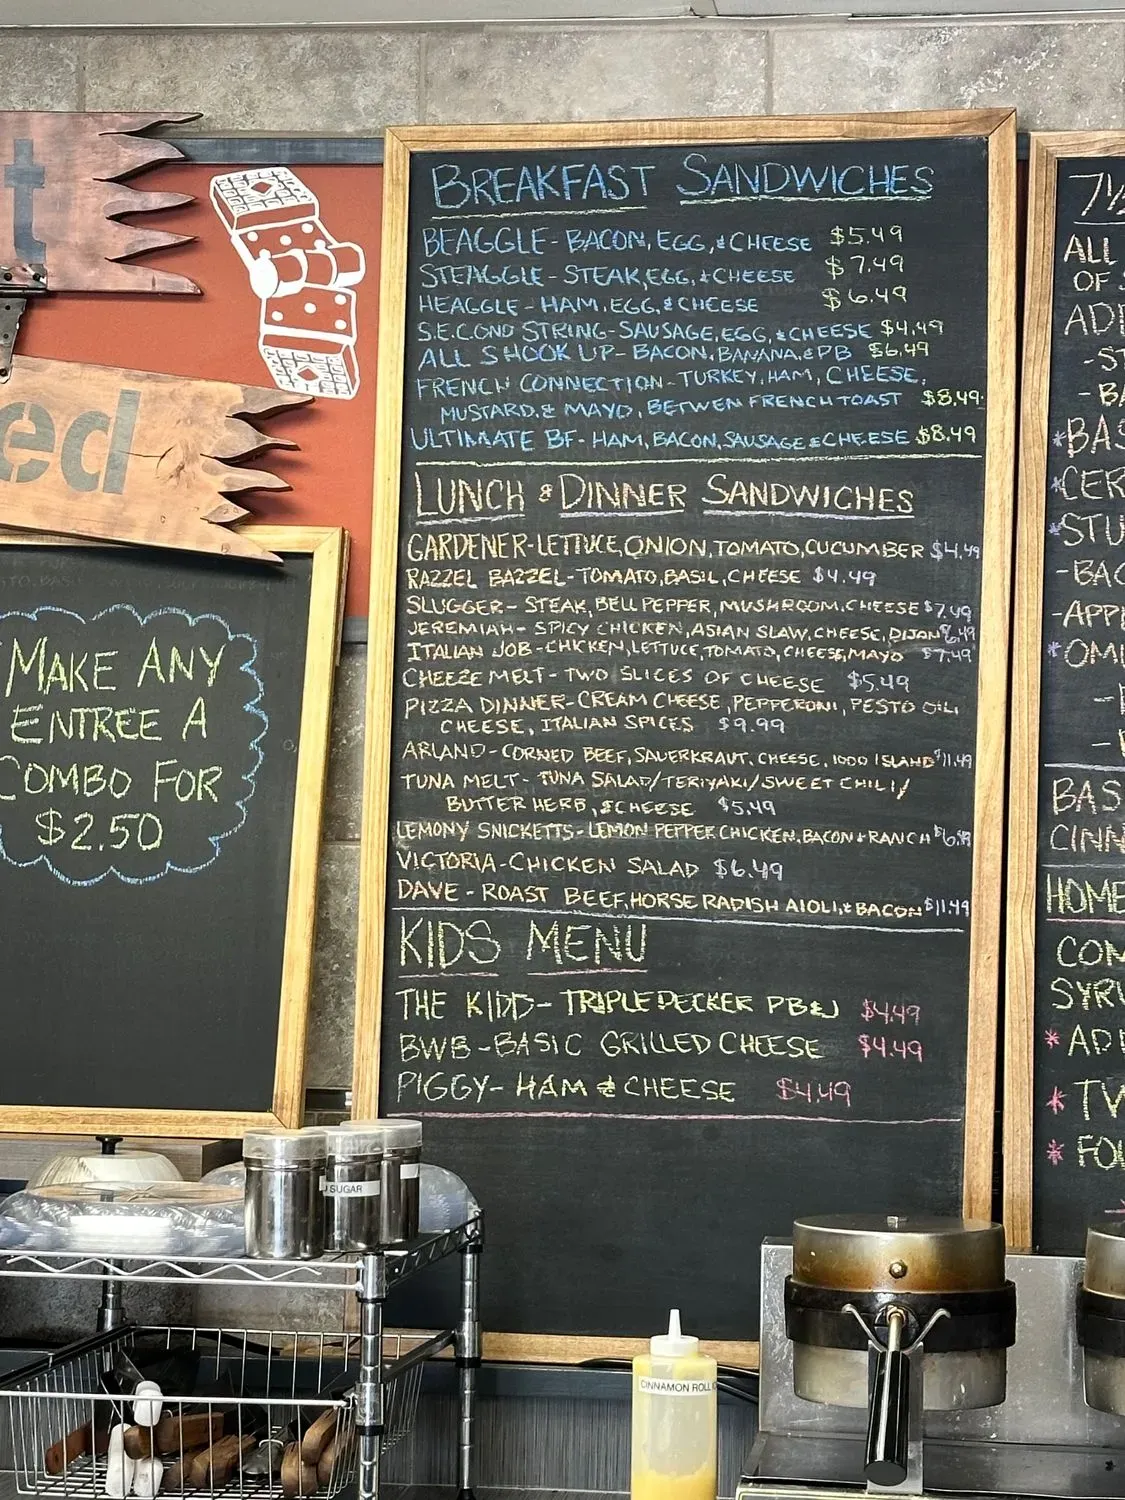 t
ed
MAKE ANY
ENTREE A
COMBO FOR
$2.50
BREAKFAST SANDWICHES
BEAGGLE- BACON, EGG, & CHEESE $5.49
STEAGGLE- STEAK, EGG, & CHEESE $7.49
HEAGGLE- HAM, EGG, & CHEESE $6.49
SECOND STRING- SAUSAGE, EGG, & CHEESE $4.49
ALL SHOOK UP- BACON, BANANA, & PB $6.49
FRENCH CONNECTION- TURKEY, HAM, CHEESE,
MUSTARD, & MAYO, BETWEN FRENCH TOAST $8.49
ULTIMATE BF- HAM, BACON, SAUSAGE & CHEESE $8.49
LUNCH & DINNER SANDWICHES
GARDENER-LETTUCE, ONION, TOMATO, CUCUMBER $4.49
RAZZEL BAZZEL-TOMATO, BASIL, CHEESE $4.49
SLUGGER- STEAK, BELL PEPPER, MUSHROOM, CHEESE $7.49
JEREMIAH- SPICY CHICKEN, ASIAN SLAW, CHEESE, DIJAN $6.49
ITALIAN JOB-CHICKEN, LETTUCE, TOMATO, CHEESE, MAYO $7.49
CHEEZE MELT- TWO SLICES OF CHEESE $5.49
PIZZA DINNER-CREAM CHEESE, PEPPERONI, PESTO OIL,
CHEESE, ITALIAN SPICES $9.99
ARLAND-CORNED BEEF, SAUERKRAUT, CHEESE, 1000 ISLAND $11.49
TUNA MELT- TUNA SALAD/TERIYAKI/SWEET CHILI/
BUTTER HERB, & CHEESE $5.49
LEMONY SNICKETTS-LEMON PEPPER CHICKEN, BACON & RANCH $6.49
VICTORIA-CHICKEN SALAD $6.49
DAVE- ROAST BEEF, HORSE RADISH AIOLI, & BACON $11.49
KIDS MENU
THE KIDD- TRIPLE DECKER PB&J $4.49
BWB-BASIC GRILLED CHEESE $4.49
PIGGY- HAM & CHEESE $4.49
7½
ALL
OF
ADD
-ST
-BA
*BAS
*CER
*STU
-BAC
-APP
*OMI
BAS
CINN
HOME
COM
SYRU
*ADD
*TW
*FOU
SUGAR
CINNAMON ROLL